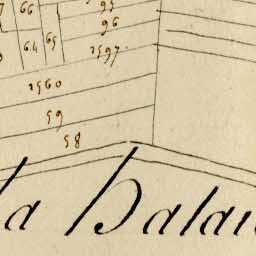 66 95
96
64 65 1597.
1560
59
58
la Balai